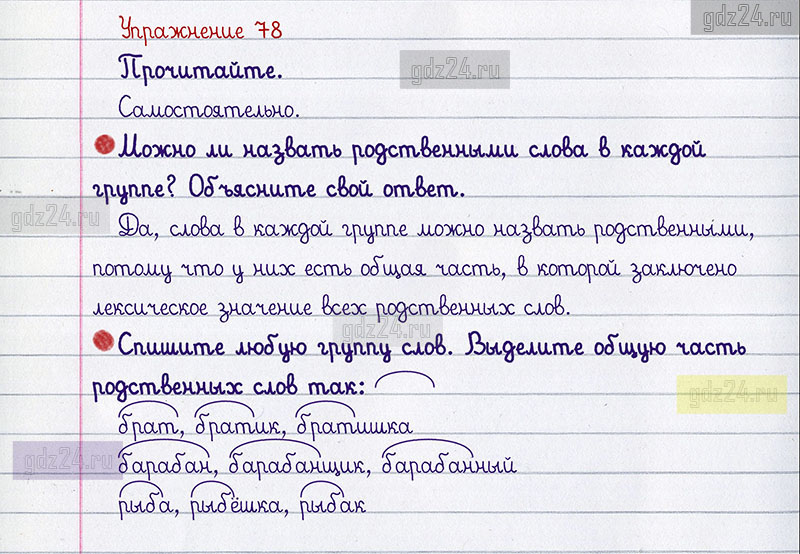 gdz24.ru
Упражнение 78
Прочитайте.
gdz24.ru
Самостоятельно.
Можно ли назвать родственными слова в каждой
группе? Объясните свой ответ.
gdz24.ru
Да, слова в каждой группе можно назвать родственными,
потому что у них есть общая часть, в которой заключено
лексическое значение всех родственных слов.
gdz24.ru
Спишите любую группу слов. Выделите общую часть
родственных слов так:
gdz24.ru
брат, братик, братишка
gdz24.ru
барабан, барабанщик, барабанный
рыба, рыбёшка, рыбак